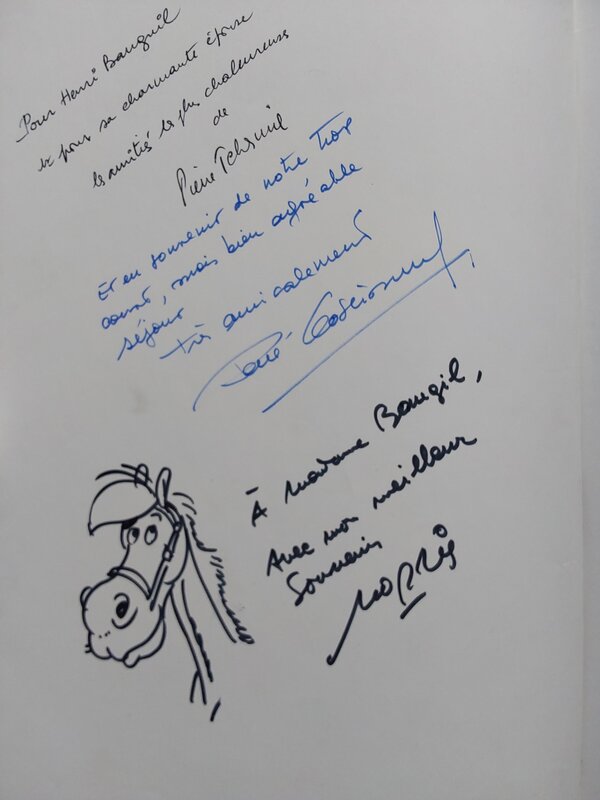 Pour Henri Bauquil
et pour sa charmante épouse
les amitiés les plus chaleureuses
de
Pierre Tchernia
Et en souvenir de notre trop
court, mais bien agréable
séjour
très amicalement
René Goscinny
À madame Bauqil,
Avec mon meilleur
Souvenir
Morris